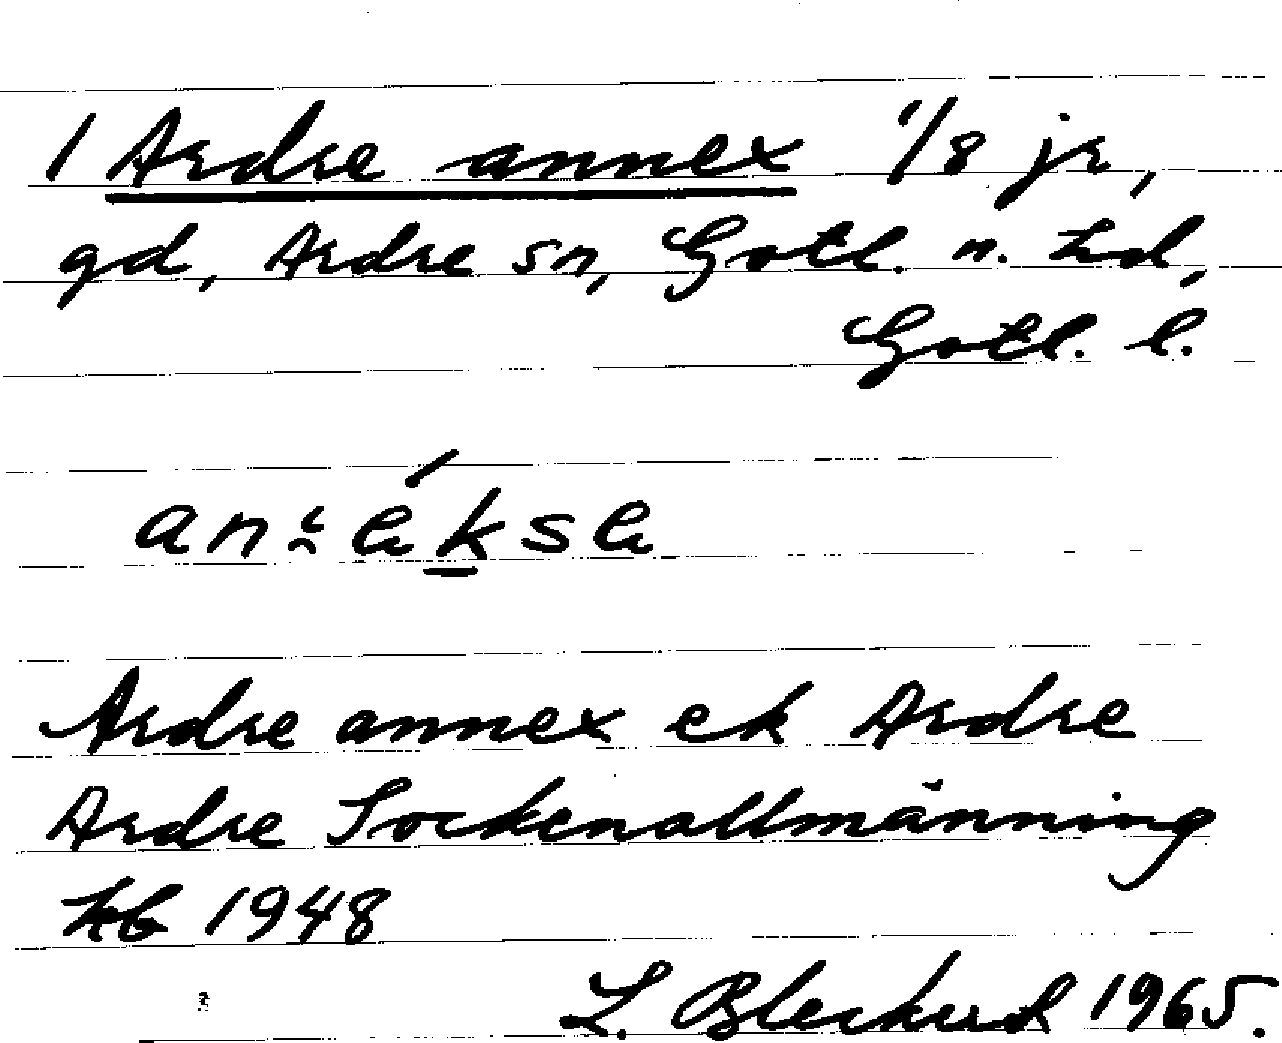 1 Ardre annex 1/8 jr,
gd, Ardre sn, Gotl. n. hd,
Gotl. l.
Ardre annex ek Ardre
Ardre Sockenallmänning
kb 1948
L. Bleckert 1965.